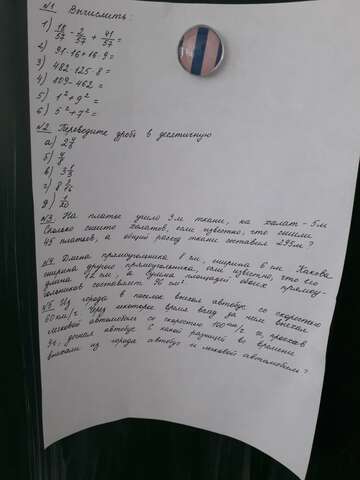 №1 Вычислить:
1) 18/57 - 2/57 + 41/57 =
2) 91·16+16·9=
3) 482·125·8=
4) 809-462=
5) 1²+9²=
6) 5²+7²=
№2 Переведите дробь в десятичную
а)
б)
в)
г)
д)
№3 На платье ушло 3м ткани, на халат - 5м
Сколько сшито халатов, если известно, что сшили
45 платьев, а общий расход ткани составил 235м?
№4 Длина прямоугольника 8 см, ширина 6 см. Какова
ширина другого прямоугольника, если известно, что его
длина 12 см, а сумма площадей обоих прямоу-
гольников составляет 96 см²
№5 Из города в поселок выехал автобус со скоростью
60км/ч. Через некоторое время вслед за ним выехал
легковой автомобиль со скоростью 100 км/ч и, проехав
3ч, догнал автобус. С какой разницей во времени
выехали из города автобус и легковой автомобиль?